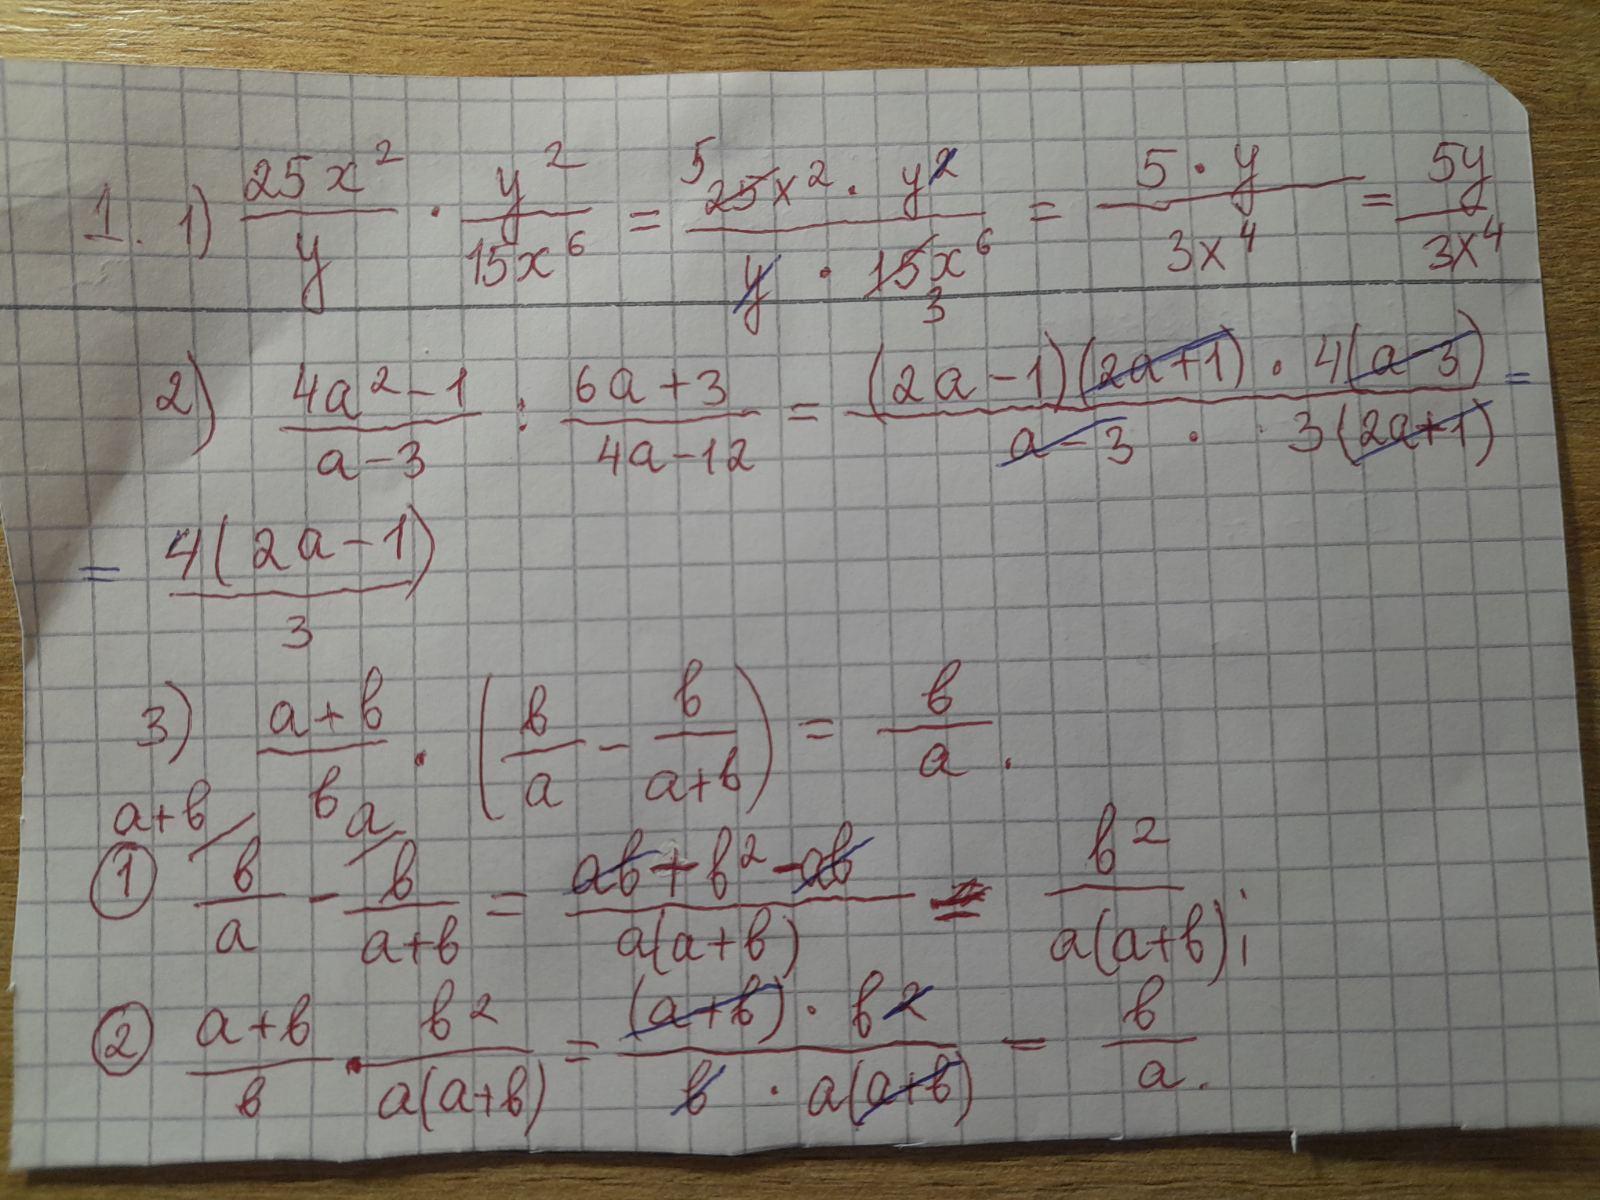 1. 1) 25x²/y · y²/15x⁶ = 5 25x² · y²/y · 15x⁶ 3 = 5 · y/3x⁴ = 5y/3x⁴
2) 4a²-1/a-3 : 6a+3/4a-12 = (2a-1)(2a+1) · 4(a-3)/a-3 · 3(2a+1) =
= 4(2a-1)/3
3) a+b/b · (b/a - b/a+b) = b/a.
① a+b/ b/a - a/ b/a+b = ab+b²-ab/a(a+b) = b²/a(a+b);
② a+b/b · b²/a(a+b) = (a+b) · b²/b · a(a+b) = b/a.